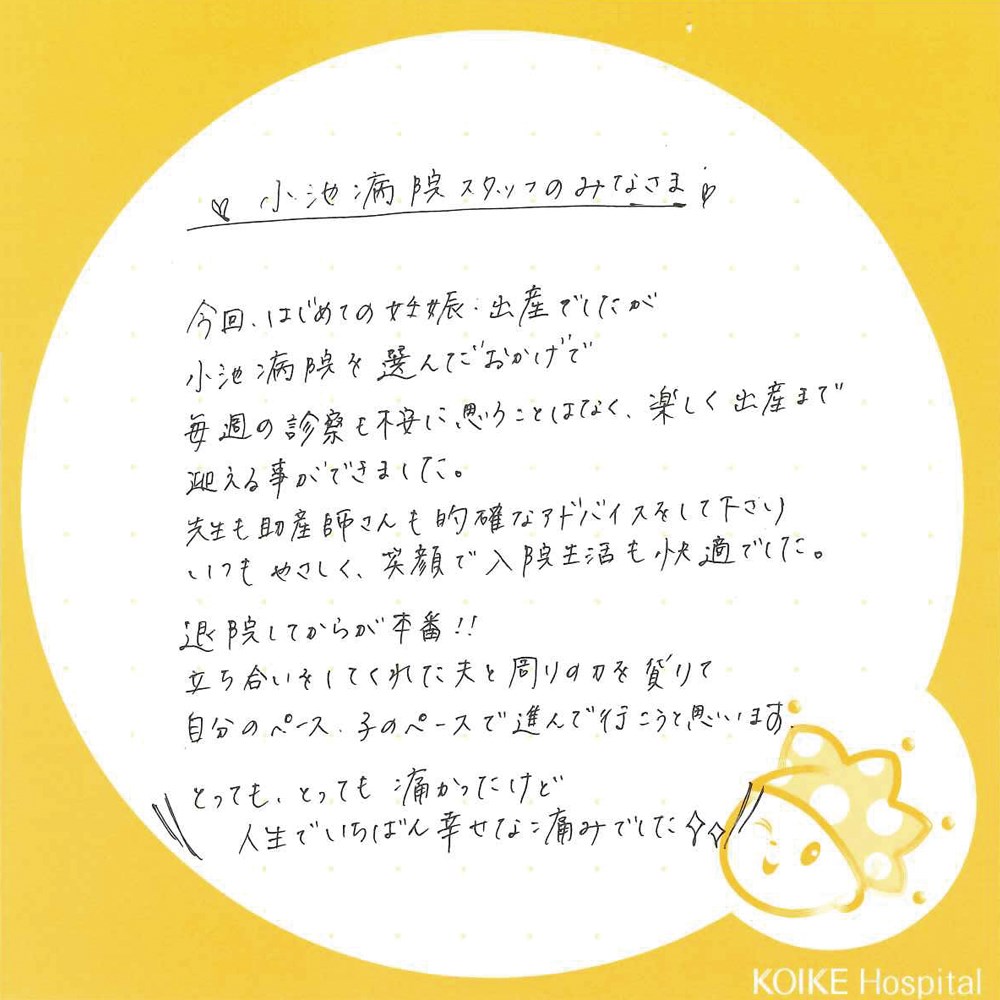 ♡ 小池病院スタッフのみなさま ♡
今回、はじめての妊娠・出産でしたが
小池病院を選んだおかげで
毎週の診察も不安に思うことはなく、楽しく出産まで
迎える事ができました。
先生も助産師さんも的確なアドバイスをして下さり
いつもやさしく、笑顔で入院生活も快適でした。
退院してからが本番!!
立ち合いをしてくれた夫と周りの力を貸りて
自分のペース、子のペースで進んで行こうと思います。
とっても、とっても痛かったけど
人生でいちばん幸せな痛みでした
KOIKE Hospital